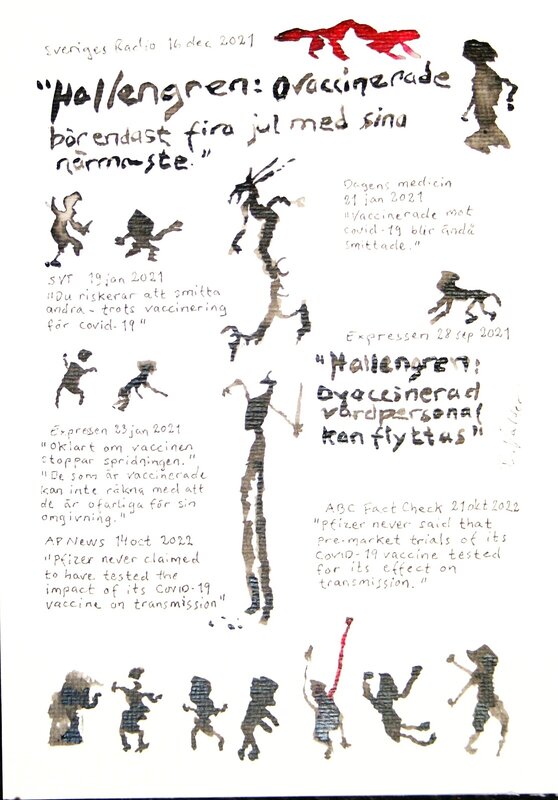 Sveriges Radio 16 dec 2021
"Hallengren: Ovaccinerade
bör endast fira jul med sina
närmaste."
Dagens medicin
21 jan 2021
"Vaccinerade mot
covid-19 blir ändå
smittade."
SVT 19 jan 2021
"Du riskerar att smitta
andra - trots vaccinering
för Covid-19"
Expressen 28 sep 2021
"Hallengren:
Ovaccinerad
vårdpersonal
kan flyttas"
Expressen 23 jan 2021
"Oklart om vaccinen
stoppar spridningen."
"De som är vaccinerade
kan inte räkna med att
de är ofarliga för sin
omgivning."
AP News 14 oct 2022
"Pfizer never claimed
to have tested the
impact of its COVID-19
vaccine on transmission"
ABC Fact Check 21 okt 2022
"Pfizer never said that
pre-market trials of its
COVID-19 vaccine tested
for its effect on
transmission."